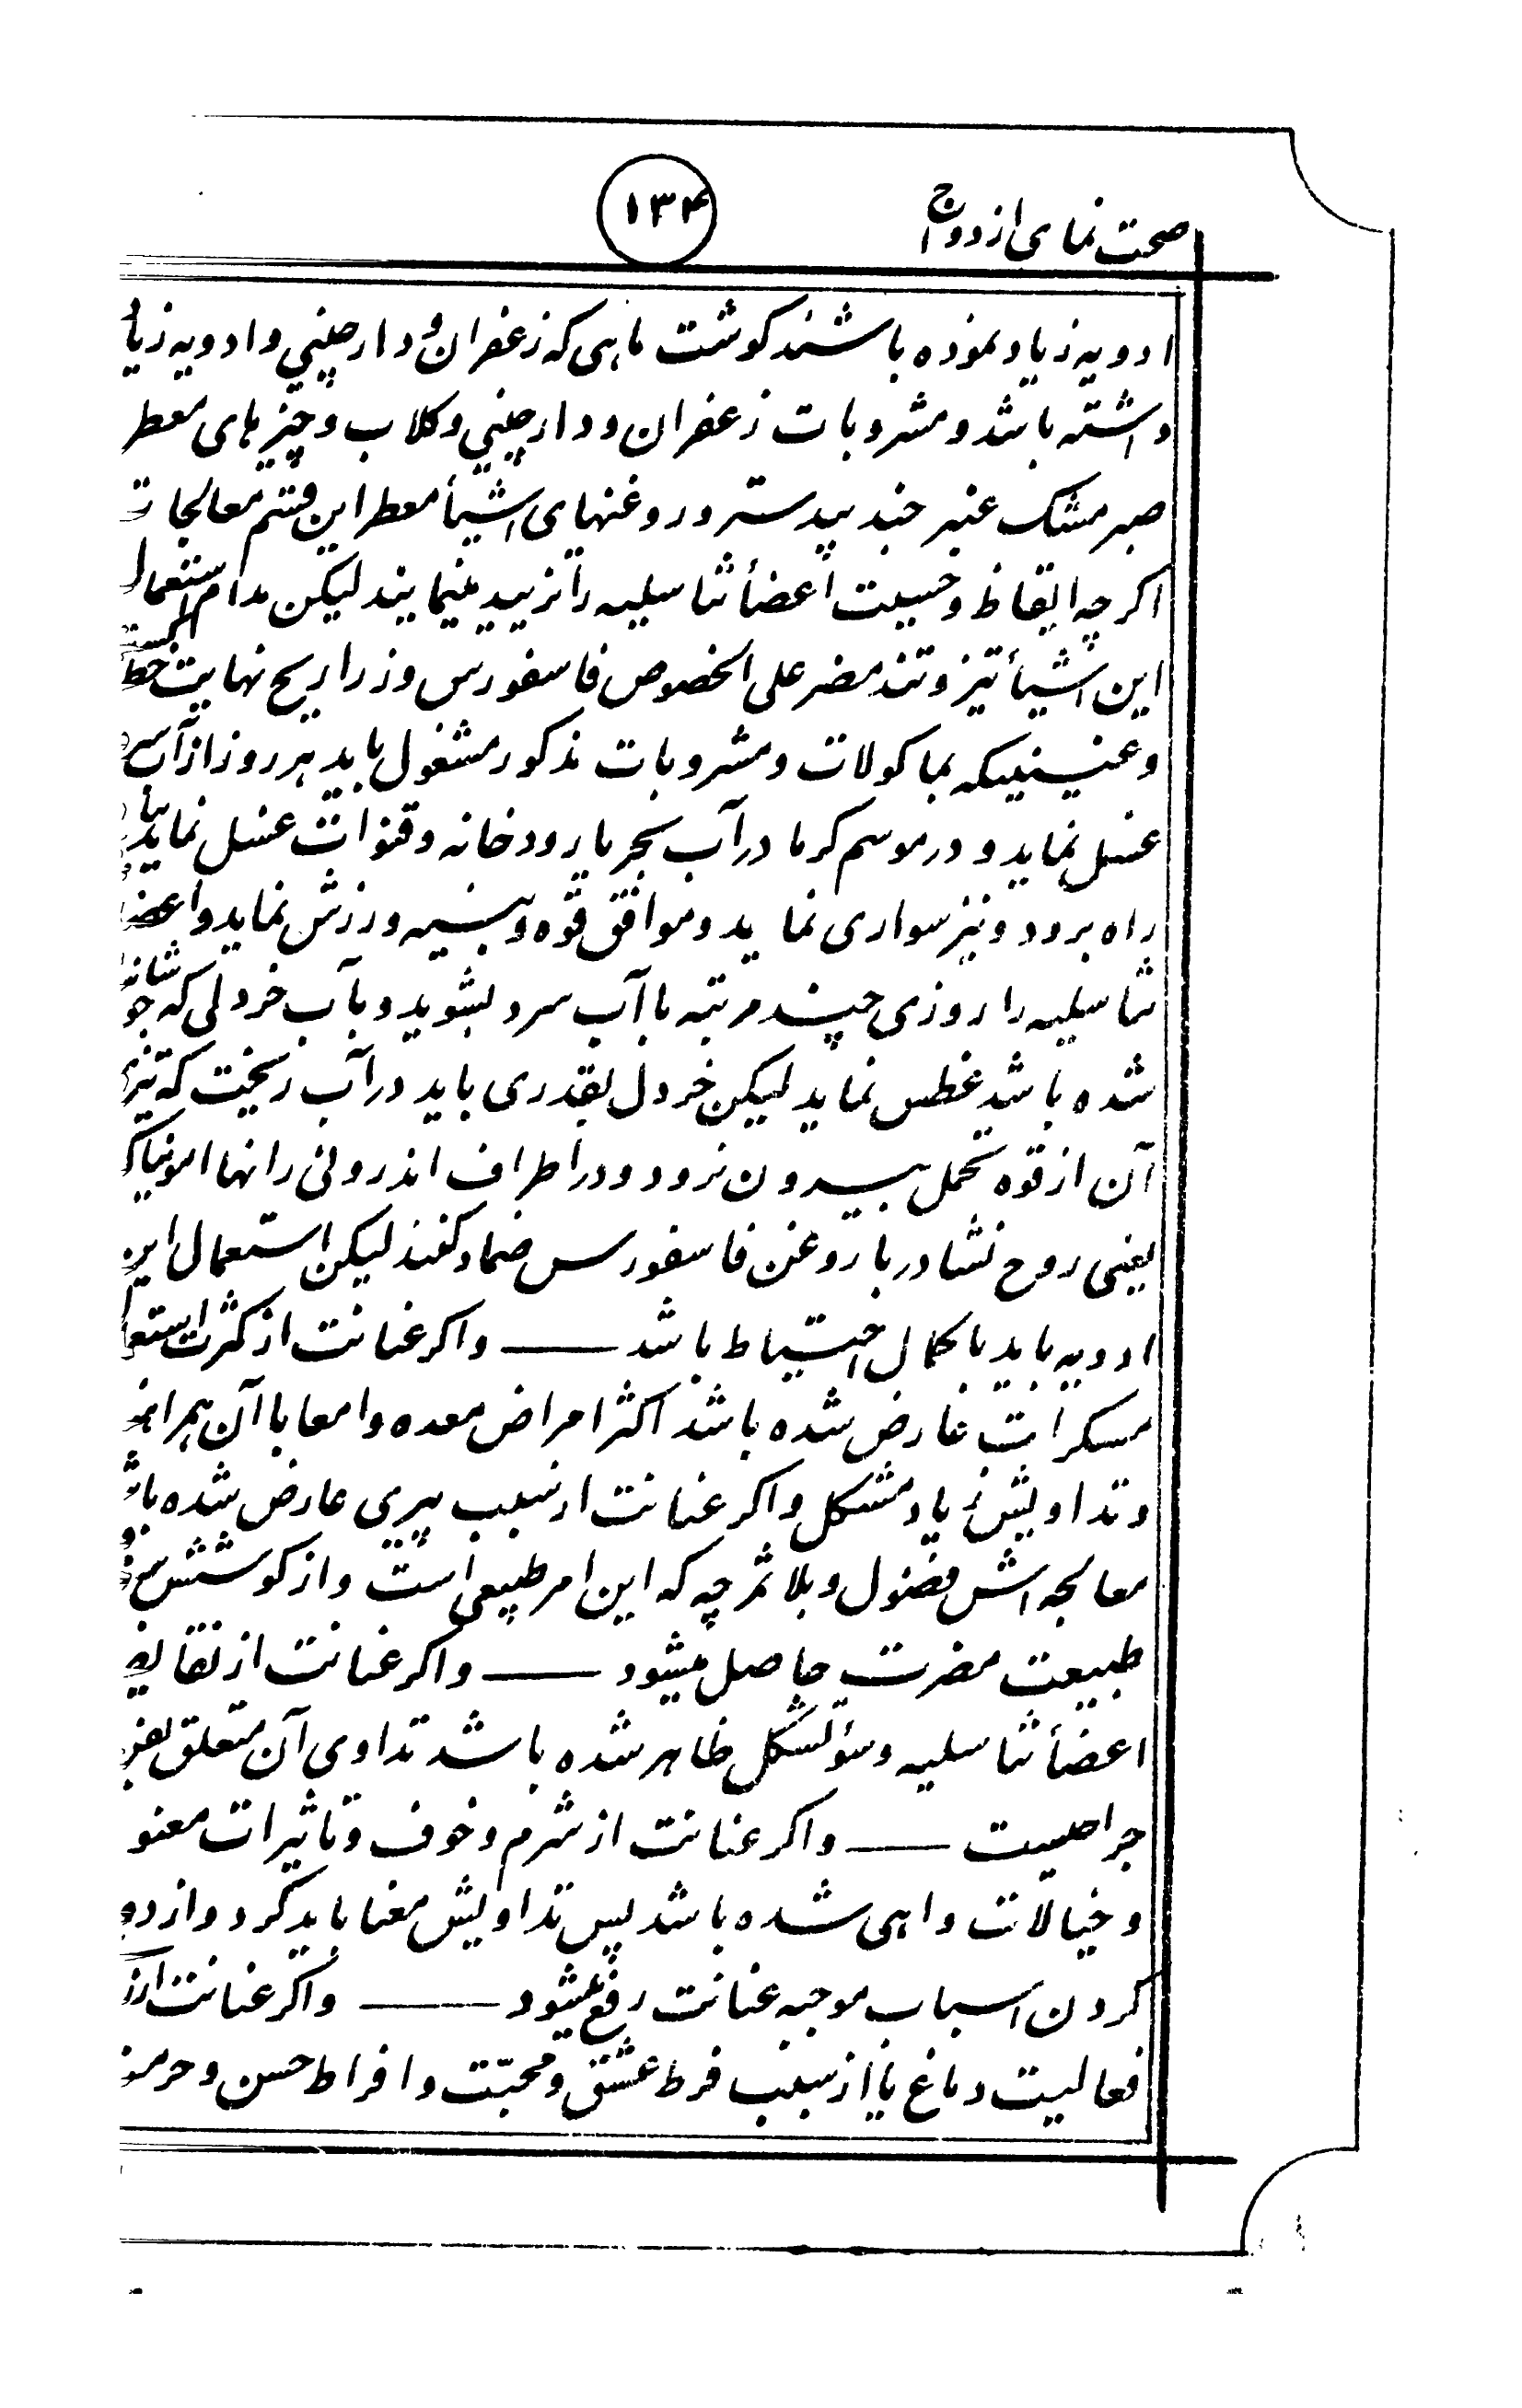 صحت نمای ازدواج
۱۳۴
ادویه زیاد نموده باشند کوشت ماهی که زعفران و دارچینی وادویه زیا
داشته باشد و مشروبات زعفران ودارچینی وکلاب وچیزهای معطر
صبر مشک عنبر جند بیدستر وروغنهای اشیأ معطر این قسم معالجات
اکرچه ایقاظ وحسیت اعضأ تناسلیه را تزیید مینمایند لیکن مدام استعمال
این اشیأ تیز وتند مضر علی الخصوص فاسفورس وزراریح نهایت
وعنینیکه بماکولات ومشروبات مذکور مشغول باید هر روز از آب
غسل نماید و در موسم کرما در آب بحر یا رودخانه وقنوات غسل نماید
راه برود ونیز سواری نماید وموافق قوه وبنیه ورزش نماید واعض
تناسلیه را روزی چند مرتبه باآب سرد بشوید وبآب خردلی که جوشانده
شده باشد غطس نماید لیکن خردل بقدری باید در آب ریخت که تیزی
آن از قوه تحمل بیرون نرود ودر اطراف اندرونی رانها امونیاک
یعنی روح نشادر با روغن فاسفورس ضماد کنند لیکن استعمال این
ادویه باید باکمال احتیاط باشد ــــ واکر عنانت از کثرت استعما
مسکرات عارض شده باشد اکثر امراض معده وامعا باآن همراه
وتداویش زیاد مشکل واکر عنانت از سبب پیری عارض شده باشد
معالجه اش فضول وبلا ثمر چه که این امر طبیعی است واز کوشش
طبیعت مضرت حاصل میشود ــــ واکر عنانت از نقایص
اعضأ تناسلیه وسؤ تشکل ظاهر شده باشد تداوی آن متعلق بفن
جراحیست ــــ واکر عنانت از شرم وخوف وتاثیرات معنو
وخیالات واهی شده باشد پس تداویش معنا باید کرد واز دور
کردن اسباب موجبه عنانت رفع میشود ــــ واکر عنانت از
فعالیت دماغ یا از سبب فرط عشق ومحبّت وافراط حسن وحرمت